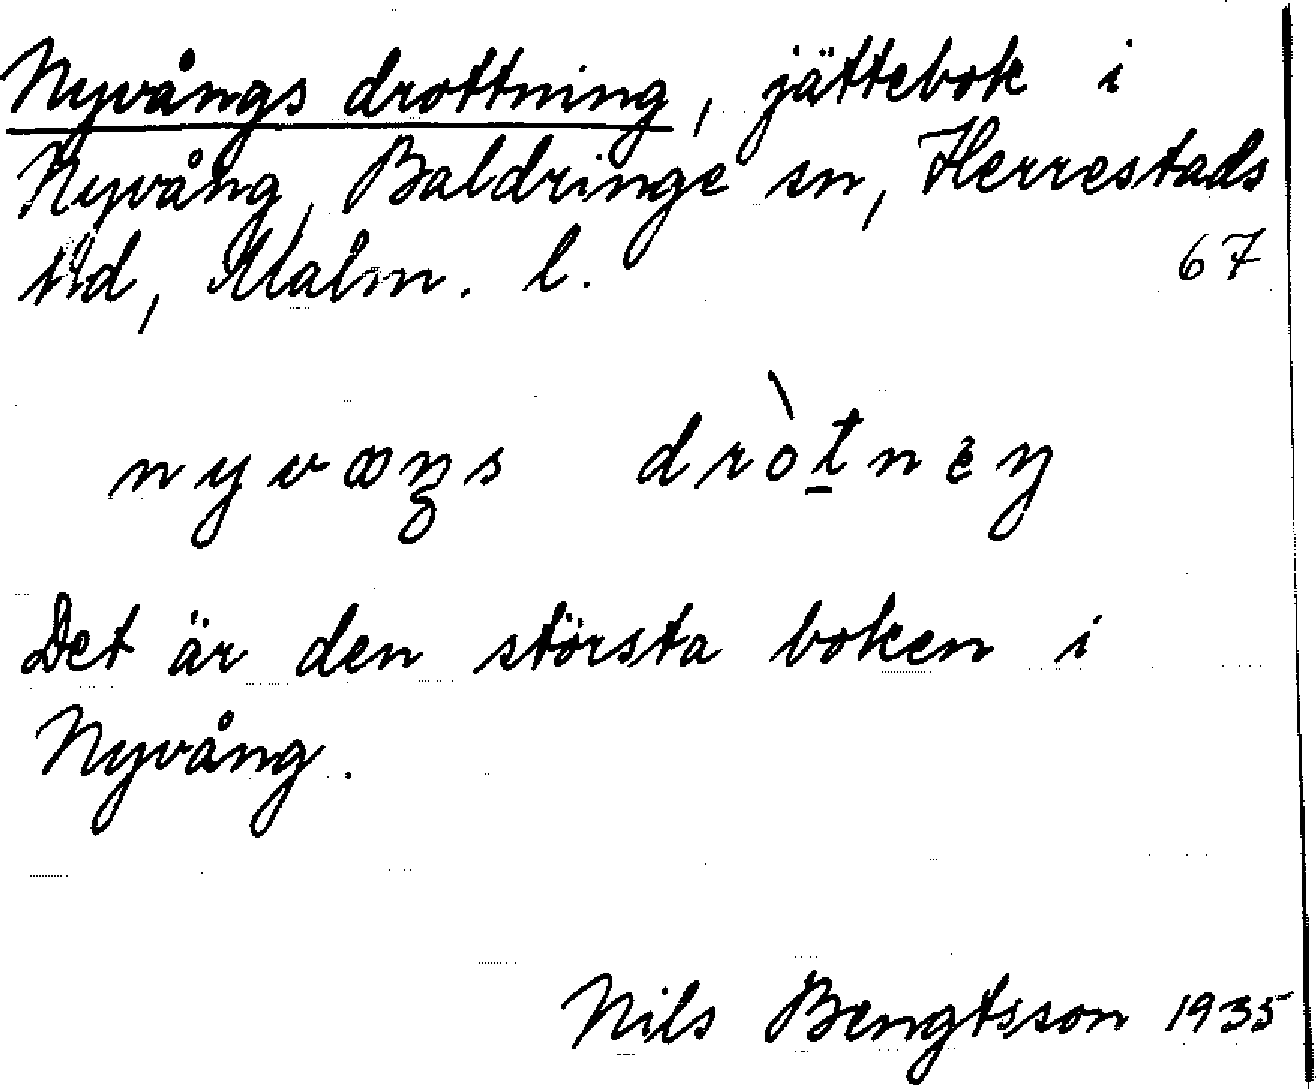 Nyvångs drottning, jättebok i
Nyvång, Baldringe sn, Herrestads
hd, Malm. l. 67
nyvꝏŋs dròt̲nëŋ
Det är den största boken i
Nyvång.
Nils Bengtsson 1935